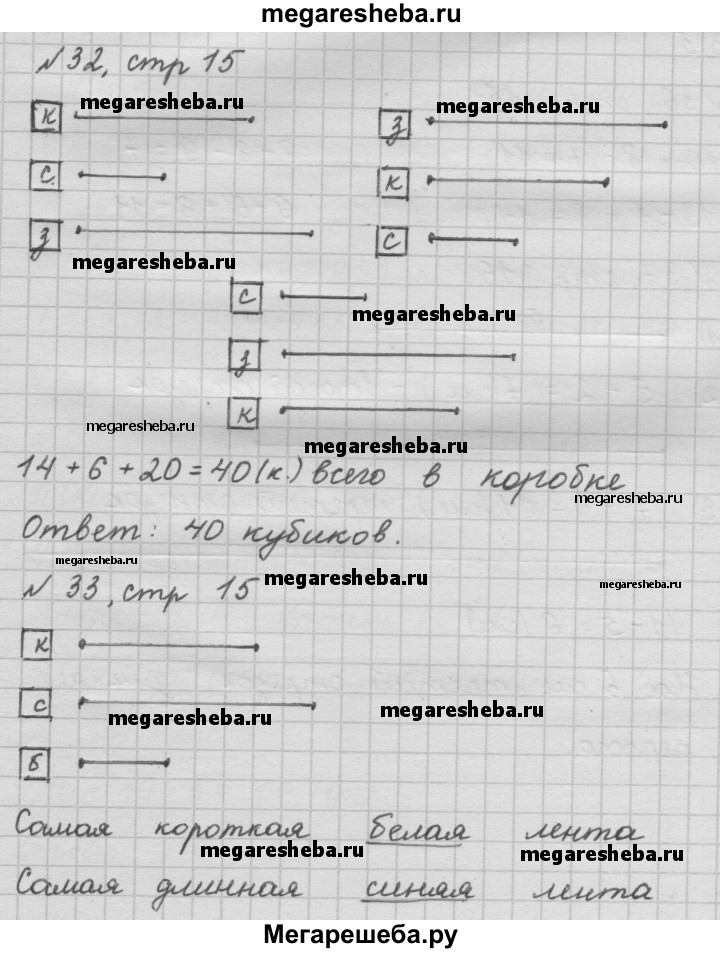 megaresheba.ru
№32, стр 15
К
megaresheba.ru
З
megaresheba.ru
С
К
З
С
megaresheba.ru
С
megaresheba.ru
З
К
megaresheba.ru
megaresheba.ru
14 + 6 + 20 = 40 (к.) всего в коробке
megaresheba.ru
Ответ: 40 кубиков.
megaresheba.ru
megaresheba.ru
megaresheba.ru
№ 33, стр 15
К
С
megaresheba.ru
megaresheba.ru
Б
Самая короткая белая лента
megaresheba.ru
megaresheba.ru
Самая длинная синяя лента
Мегарешеба.ру